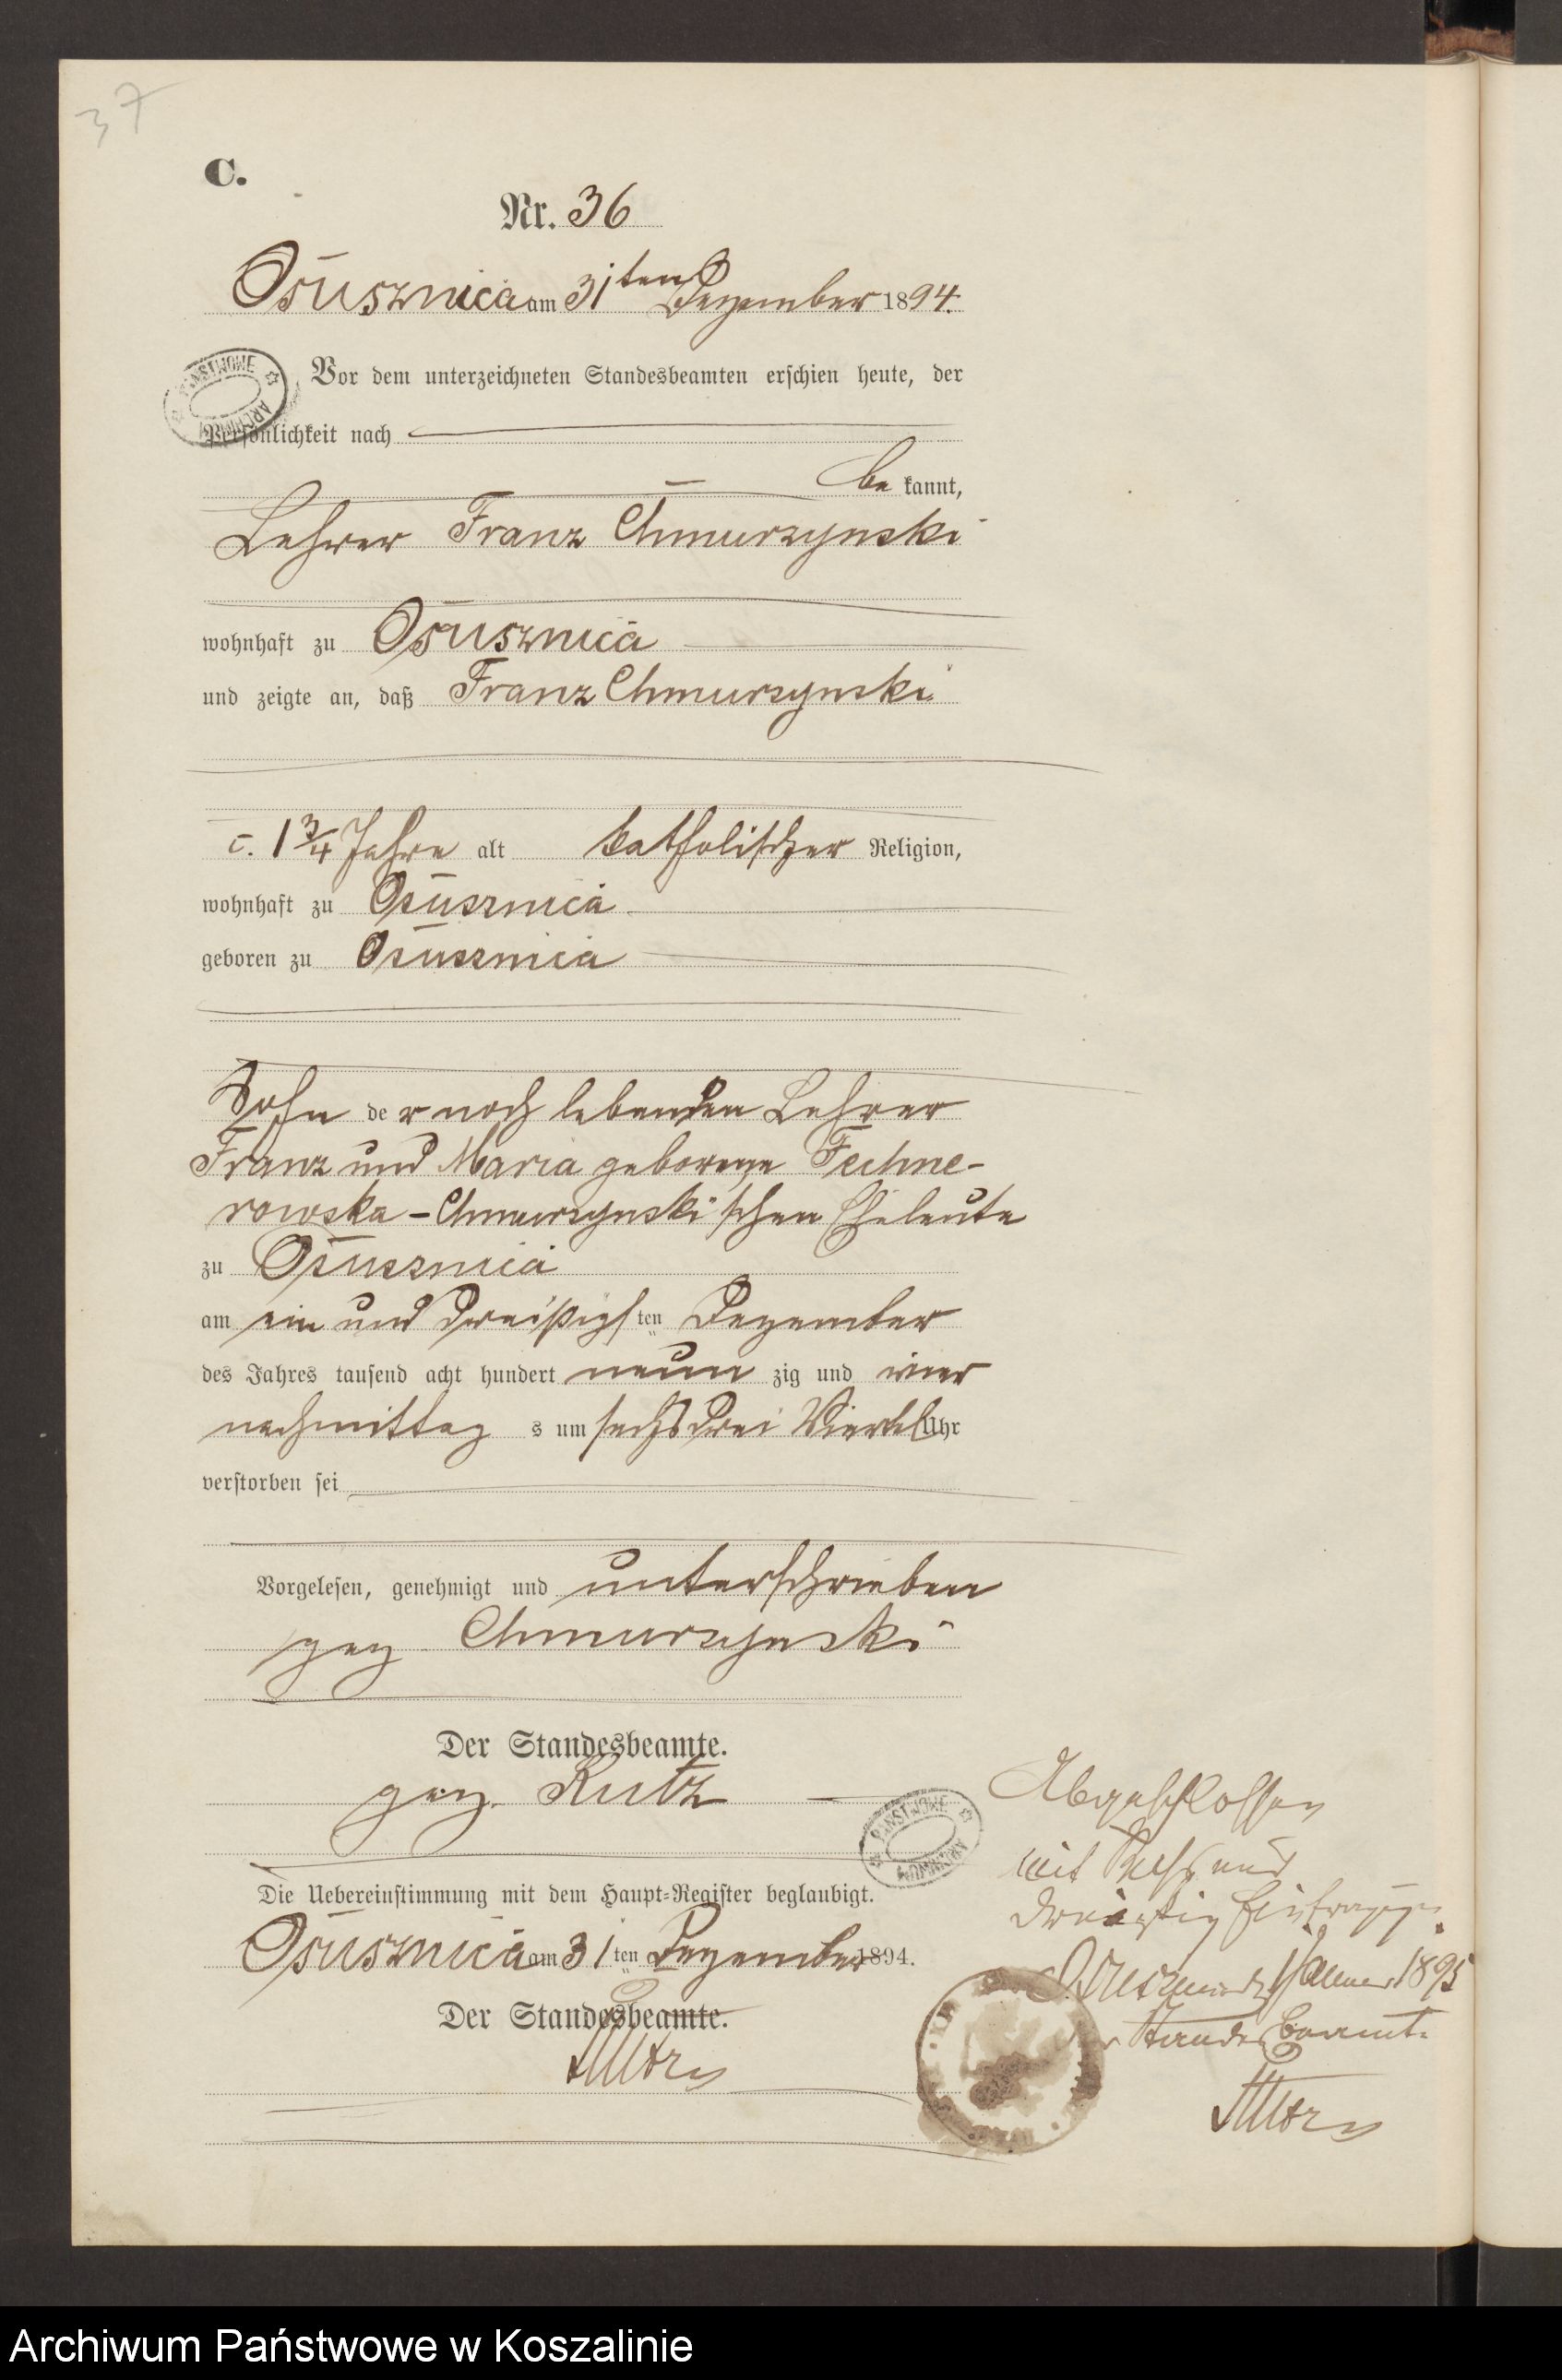 37
C.
Nr. 36
Osusznica am 31ten Dezember 1894.
Vor dem unterzeichneten Standesbeamten erschien heute, der
Persönlichkeit nach
be kannt,
Lehrer Franz Chmurzynski
wohnhaft zu Osusznica
und zeigte an, daß Franz Chmurzynski
c. 1 3/4 Jahre alt katholischer Religion,
wohnhaft zu Osusznica
geboren zu Osusznica
Sohn der noch lebenden Lehrer
Franz und Maria geborene Fechne-
rowska-Chmurzynski'schen Eheleute
zu Osusznica
am ein und dreißigsten Dezember
des Jahres tausend acht hundert neun zig und vier
nachmittag s um sechs drei Viertel Uhr
verstorben sei
Vorgelesen, genehmigt und unterschrieben
gez Chmurzynski
Der Standesbeamte.
gez. Kutz
PAŃSTWOWE ARCHIWUM
Die Uebereinstimmung mit dem Haupt-Register beglaubigt.
Osusznica am 31ten Dezember 1894.
Der Standesbeamte.
Kutz
Abgeschlossen
mit sechs und
dreissig Eintragg.
Osusznica d. 1 Januar 1895
Der Standesbeamte
Kutz
Archiwum Państwowe w Koszalinie